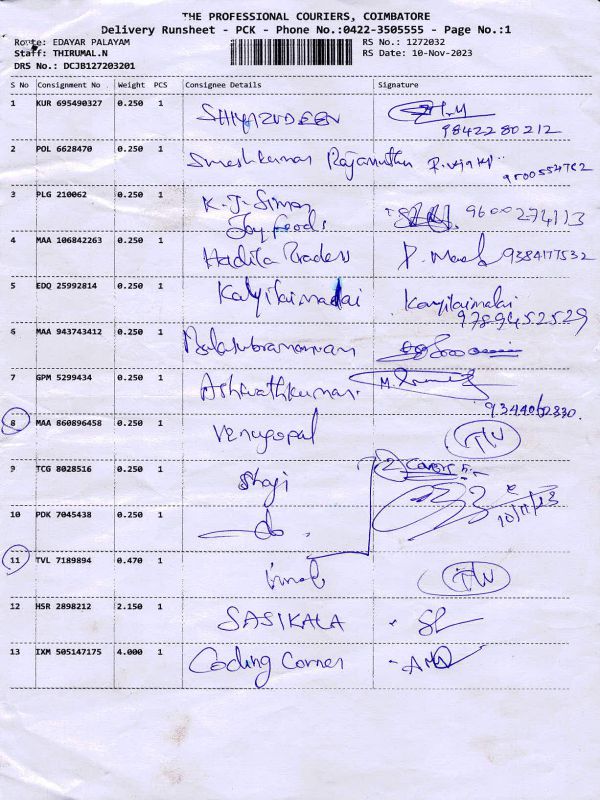 THE PROFESSIONAL COURIERS, COIMBATORE
Delivery Runsheet - PCK - Phone No.:0422-3505555 - Page No.:1
Route: EDAYAR PALAYAM RS No.: 1272032
Staff: THIRUMAL.N RS Date: 10-Nov-2023
DRS No.: DCJB127203201
S No Consignment No Weight PCS Consignee Details Signature
1 KUR 695490327 0.250 1 SHIYAZUDEEN
9842280212
2 POL 6628470 0.250 1 Sureshkumar Rajamuthu
9500554762
3 PLG 210062 0.250 1 K.J. Simon 9600274113
Joy Foods
4 MAA 106842263 0.250 1 Hadita Traders 9384177532
5 EDQ 25992814 0.250 1 Kalyilaimalai Kayilaimalai
9789452529
6 MAA 943743412 0.250 1 Balasubramaniam
7 GPM 5299434 0.250 1 Ashwathkumar
9344062830.
8 MAA 860896458 0.250 1 Venugopal
9 TCG 8028516 0.250 1 Shaji 2
10/11/23
10 PDK 7045438 0.250 1 do
11 TVL 7189894 0.470 1
12 HSR 2898212 2.150 1 SASIKALA
13 IXM 505147175 4.000 1 Coding Corner